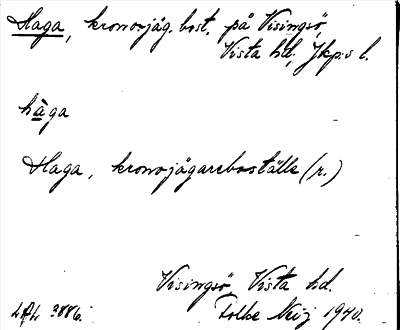 Haga, kronojäg. bost. på Visingsö,
Vista hd, Jkp:s l.
hàga
Haga, kronojägareboställe (r.)
Visingsö, Vista hd.
3886. Folke Neij 1940.